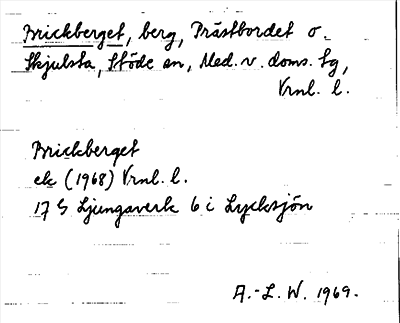 Brickberget, berg, Prästbordet o.
Skjulsta, Stöde sn, Med. v. doms. tg,
Vrnl. l.
Brickberget
ek (1968) Vrnl. l.
17 G Ljungaverk 6 i Lycksjön
A.-L. W. 1969.